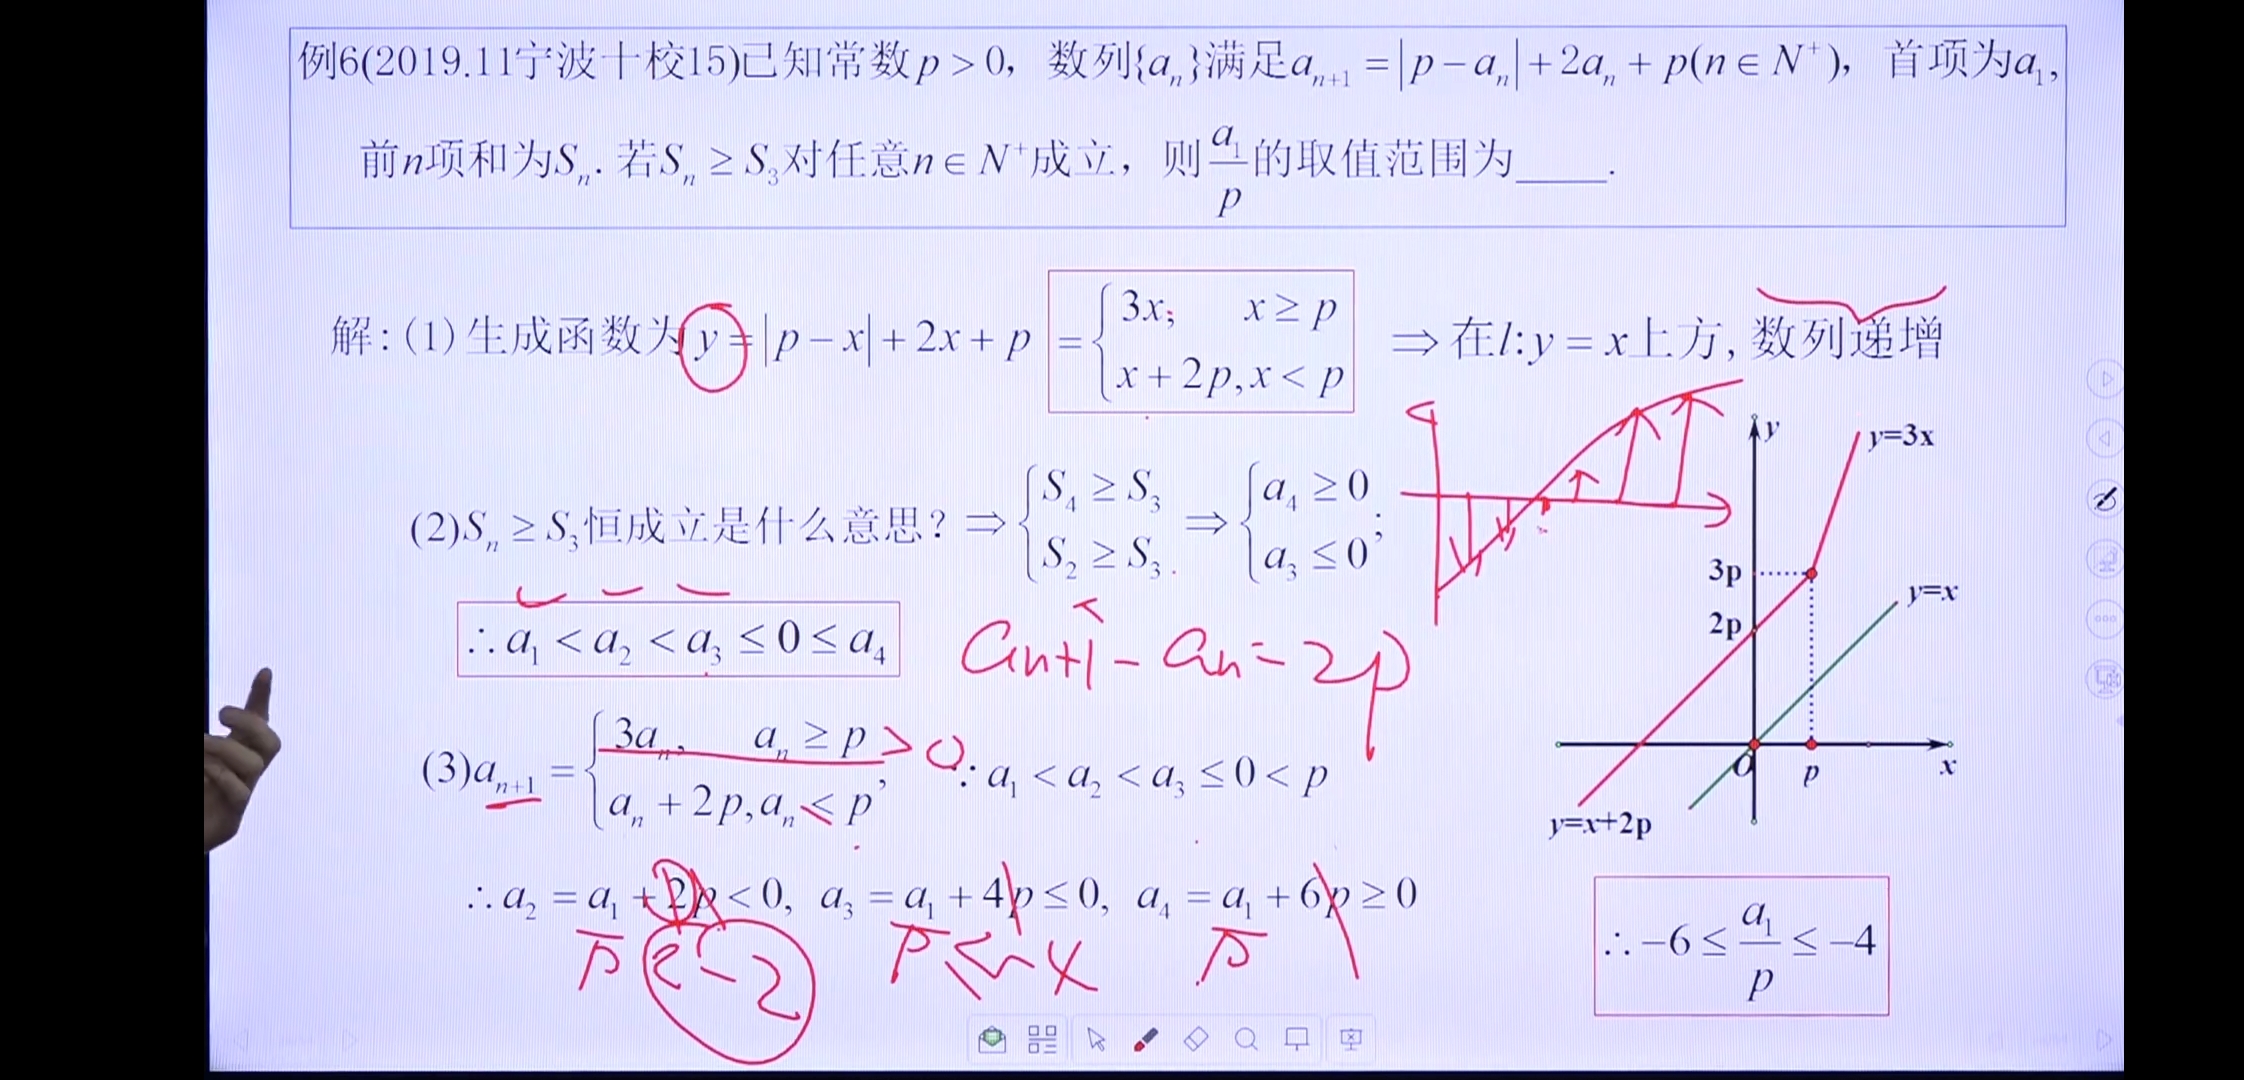 例6(2019.11宁波十校15)已知常数p > 0，数列{aₙ}满足aₙ₊₁ = |p − aₙ| + 2aₙ + p(n ∈ N⁺)，首项为a₁,
前n项和为Sₙ. 若Sₙ ≥ S₃对任意n ∈ N⁺成立，则a₁/p的取值范围为____.
解: (1) 生成函数为y = |p − x| + 2x + p = { 3x, x ≥ p; x + 2p, x < p ⇒ 在l: y = x上方, 数列递增
(2)Sₙ ≥ S₃恒成立是什么意思? ⇒ { S₄ ≥ S₃ S₂ ≥ S₃ ⇒ { a₄ ≥ 0 a₃ ≤ 0 ;
∴ a₁ < a₂ < a₃ ≤ 0 ≤ a₄
aₙ₊₁ − aₙ = 2p
(3)aₙ₊₁ = { 3aₙ, aₙ ≥ p > 0; aₙ + 2p, aₙ < p , ∵ a₁ < a₂ < a₃ ≤ 0 < p
∴ a₂ = a₁ + 2p < 0, a₃ = a₁ + 4p ≤ 0, a₄ = a₁ + 6p ≥ 0
p < −2 p ≤ −4 p
y
y=3x
3p
2p
y=x
O
p
x
y=x+2p
∴ −6 ≤ a₁/p ≤ −4